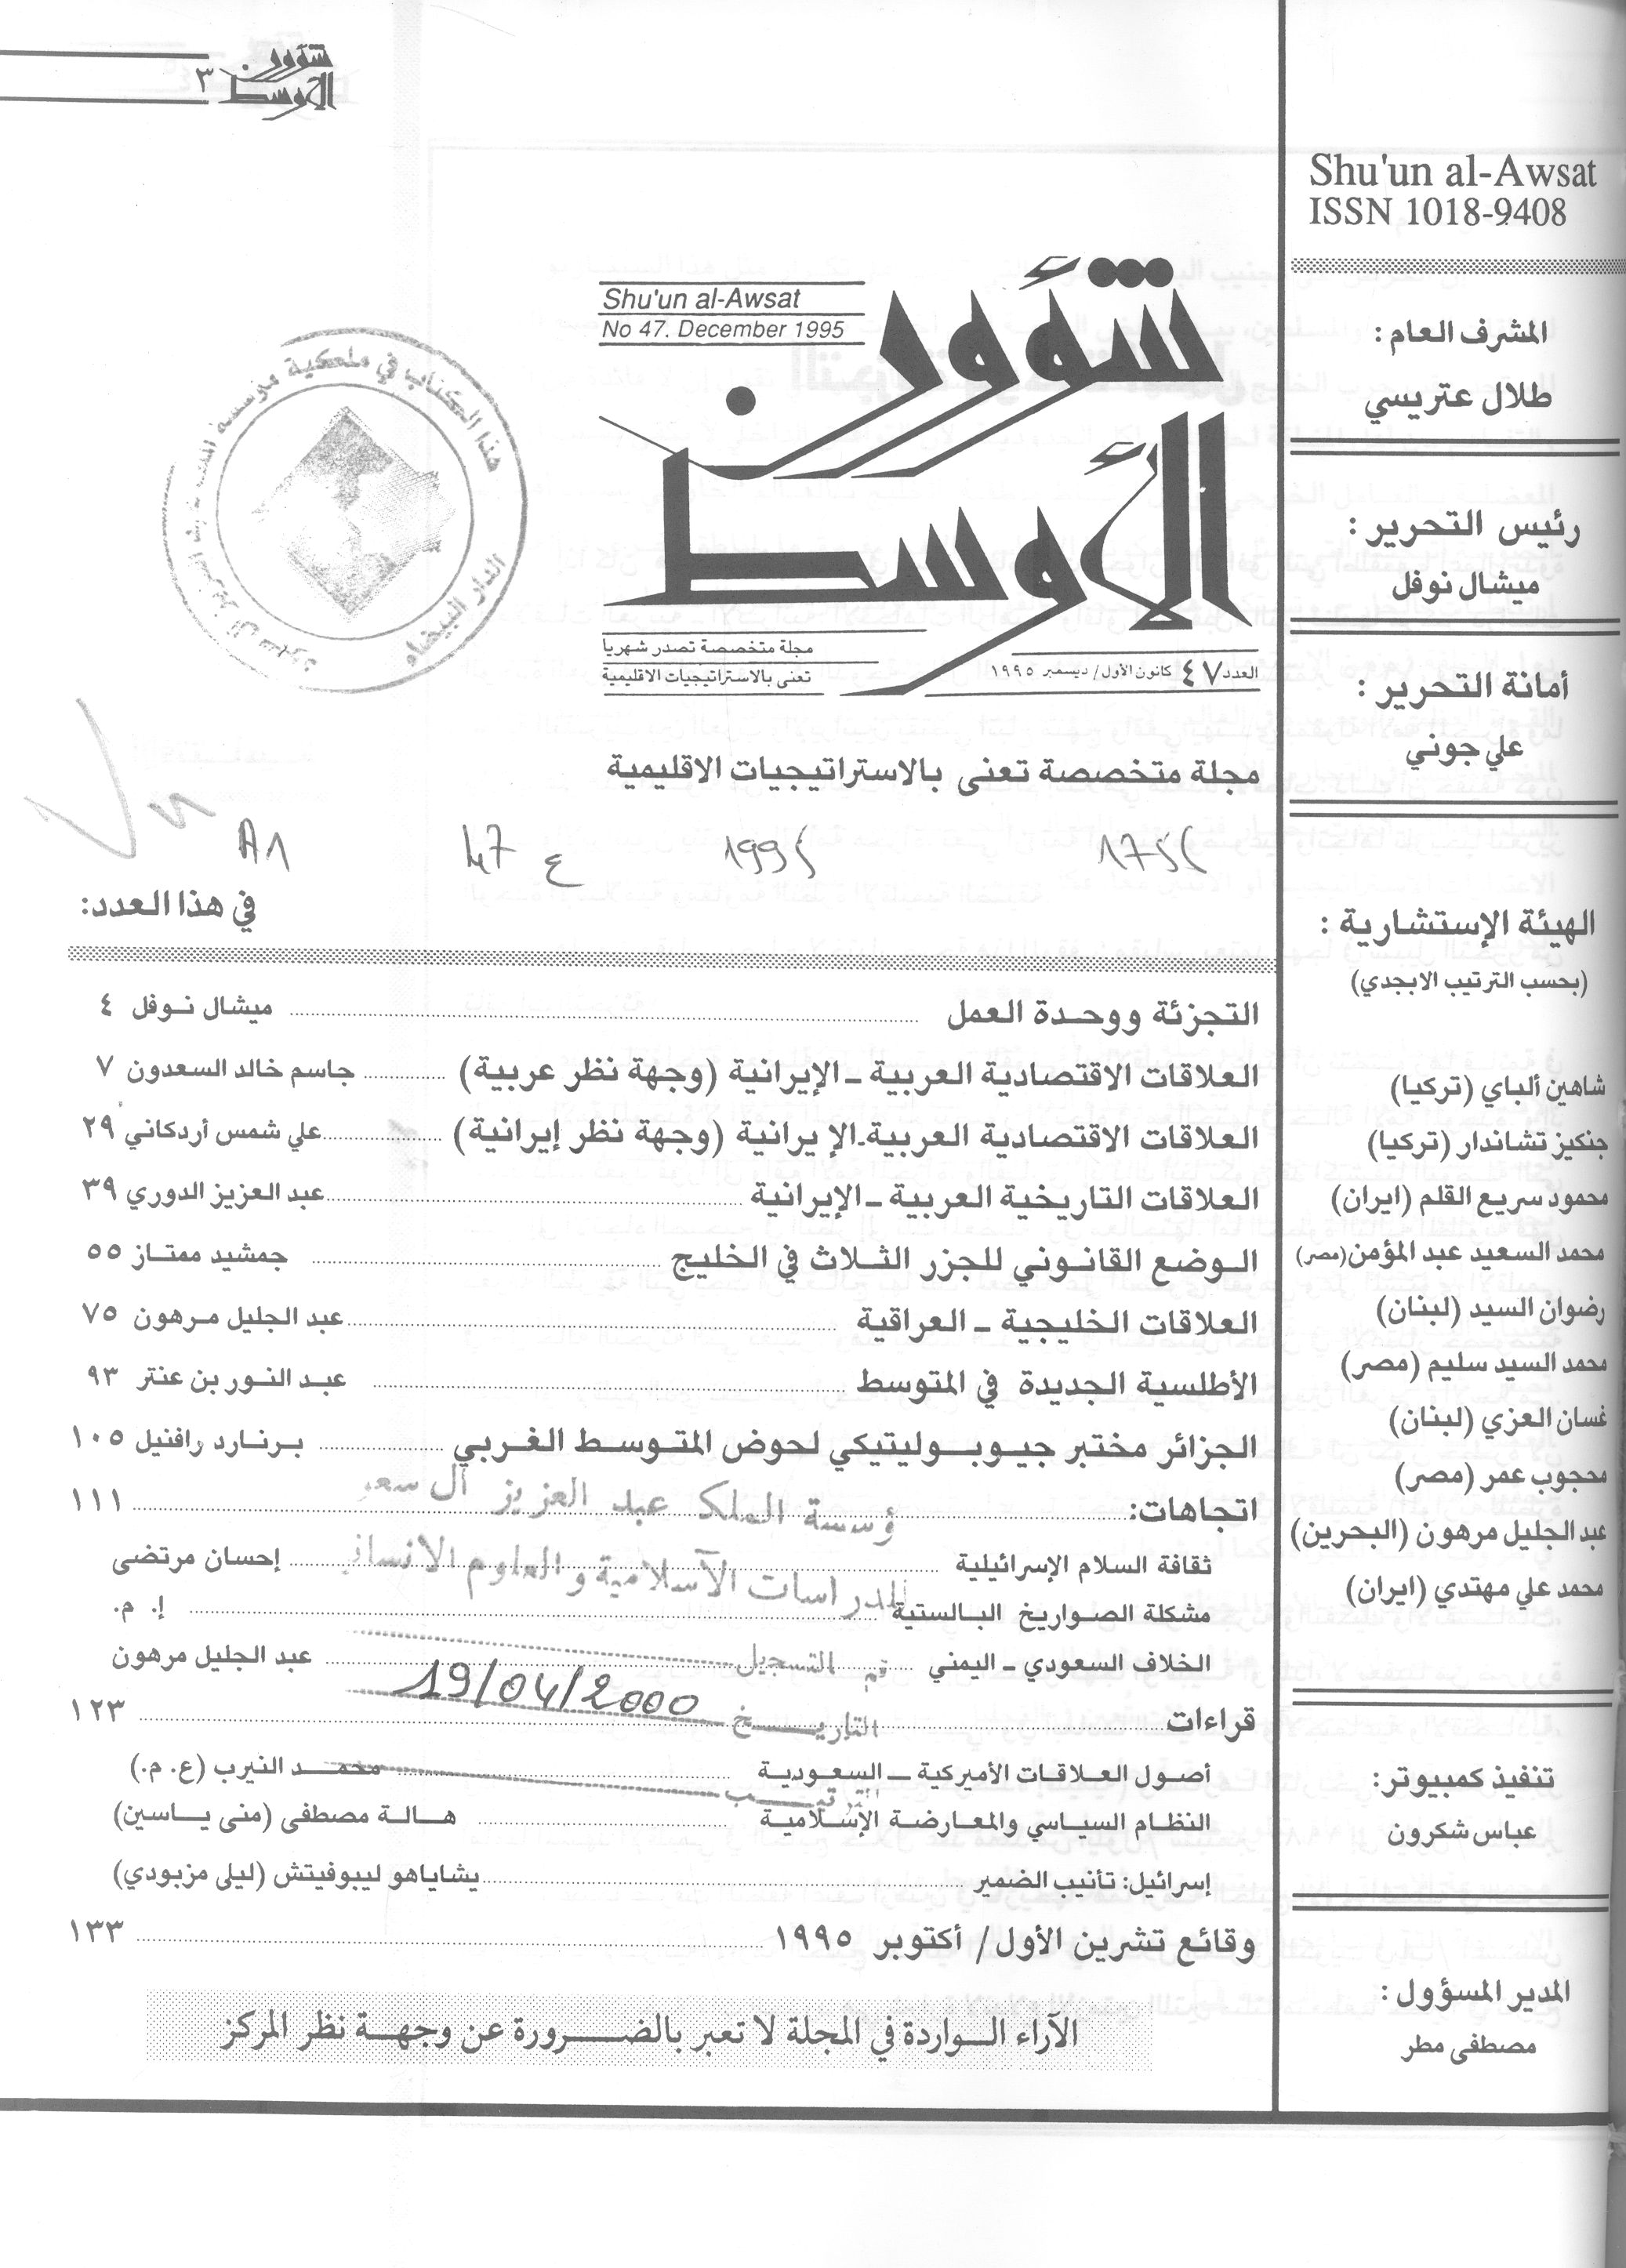 شؤون الأوسط ٣
Shu'un al-Awsat
ISSN 1018-9408
المشرف العام :
طلال عتريسي
رئيس التحرير :
ميشال نوفل
أمانة التحرير :
علي جوني
الهيئة الإستشارية :
(بحسب الترتيب الابجدي)
شاهين ألباي (تركيا)
جنكيز تشاندار (تركيا)
محمود سريع القلم (ايران)
محمد السعيد عبد المؤمن (مصر)
رضوان السيد (لبنان)
محمد السيد سليم (مصر)
غسان العزي (لبنان)
محجوب عمر (مصر)
عبد الجليل مرهون (البحرين)
محمد علي مهتدي (ايران)
تنفيذ كمبيوتر:
عباس شكرون
المدير المسؤول :
مصطفى مطر
Shu'un al-Awsat
No 47. December 1995
شؤون
الأوسط
العدد ٤٧ كانون الأول/ ديسمبر ١٩٩٥
مجلة متخصصة تصدر شهريا
تعنى بالاستراتيجيات الاقليمية
هذا الكتاب في ملكية مؤسسة الملك عبد العزيز آل سعود
الدار البيضاء
مجلة متخصصة تعنى بالاستراتيجيات الاقليمية
1995 ع 47 A1
في هذا العدد:
التجزئة ووحدة العمل ........ ميشال نوفل ٤
العلاقات الاقتصادية العربية ـ الإيرانية (وجهة نظر عربية) ........ جاسم خالد السعدون ٧
العلاقات الاقتصادية العربية ـ الإيرانية (وجهة نظر إيرانية) ........ علي شمس أردكاني ٢٩
العلاقات التاريخية العربية ـ الإيرانية ........ عبد العزيز الدوري ٣٩
الوضع القانوني للجزر الثلاث في الخليج ........ جمشيد ممتاز ٥٥
العلاقات الخليجية ـ العراقية ........ عبد الجليل مرهون ٧٥
الأطلسية الجديدة في المتوسط ........ عبد النور بن عنتر ٩٣
الجزائر مختبر جيوبوليتيكي لحوض المتوسط الغربي ........ برنارد رافنيل ١٠٥
اتجاهات: ........ ١١١
ثقافة السلام الإسرائيلية ........ إحسان مرتضى
مشكلة الصواريخ البالستية ........ إ. م.
الخلاف السعودي ـ اليمني ........ عبد الجليل مرهون
قراءات ........ ١٢٣
أصول العلاقات الأميركية ـ السعودية ........ محمد النيرب (ع. م.)
النظام السياسي والمعارضة الإسلامية ........ هالة مصطفى (منى ياسين)
إسرائيل: تأنيب الضمير ........ يشاياهو ليبوفيتش (ليلى مزبودي)
وقائع تشرين الأول/ أكتوبر ١٩٩٥ ........ ١٣٣
مؤسسة الملك عبد العزيز آل سعود
للدراسات الآسلامية والعلوم الانسانية
تم التسجيل
التاريخ 19/04/2000
الترتيب
الآراء الواردة في المجلة لا تعبر بالضرورة عن وجهة نظر المركز